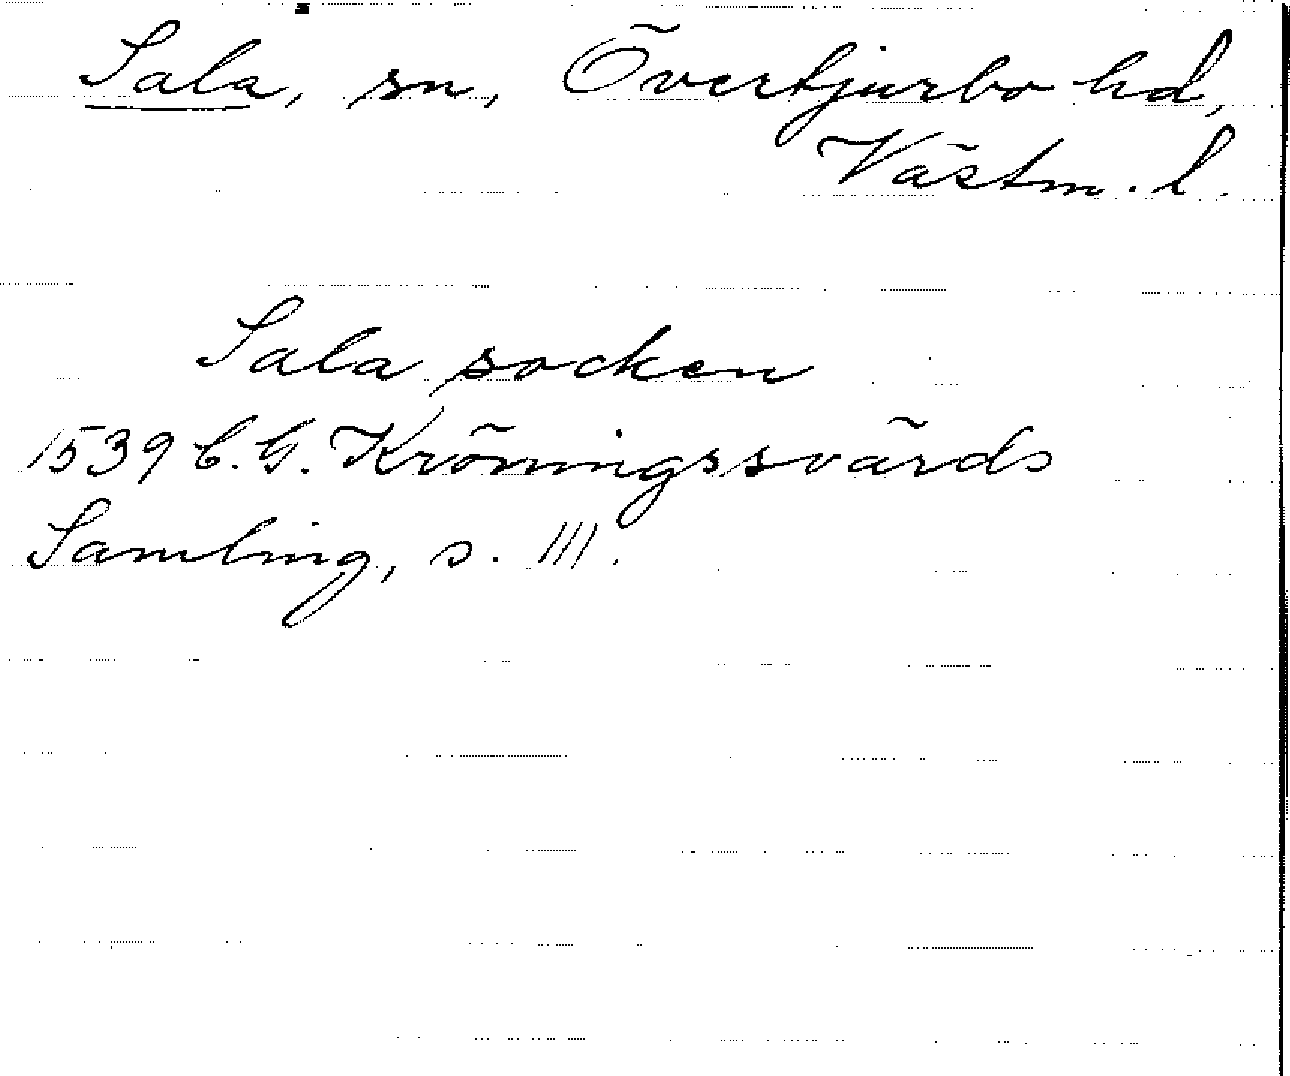 Sala, sn, Övertjurbo hd,
Västm. l.
Sala socken
1539 C. G. Kröningssvärds
Samling, s. 111.